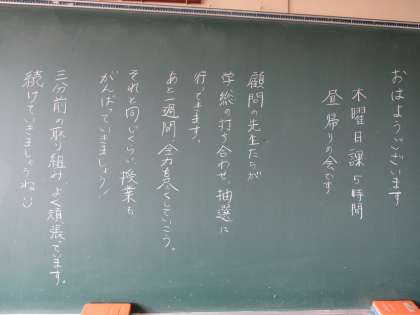 おはようございます
木曜日課5時間
昼 帰りの会です
顧問の先生たちが
学総の打ち合わせ、抽選に
行ってきます。
あと一週間 全力を尽くしていこう。
それと同じくらい授業も
がんばっていきましょう!
三分前の取り組み、よく頑張っています。
続けていきましょうね